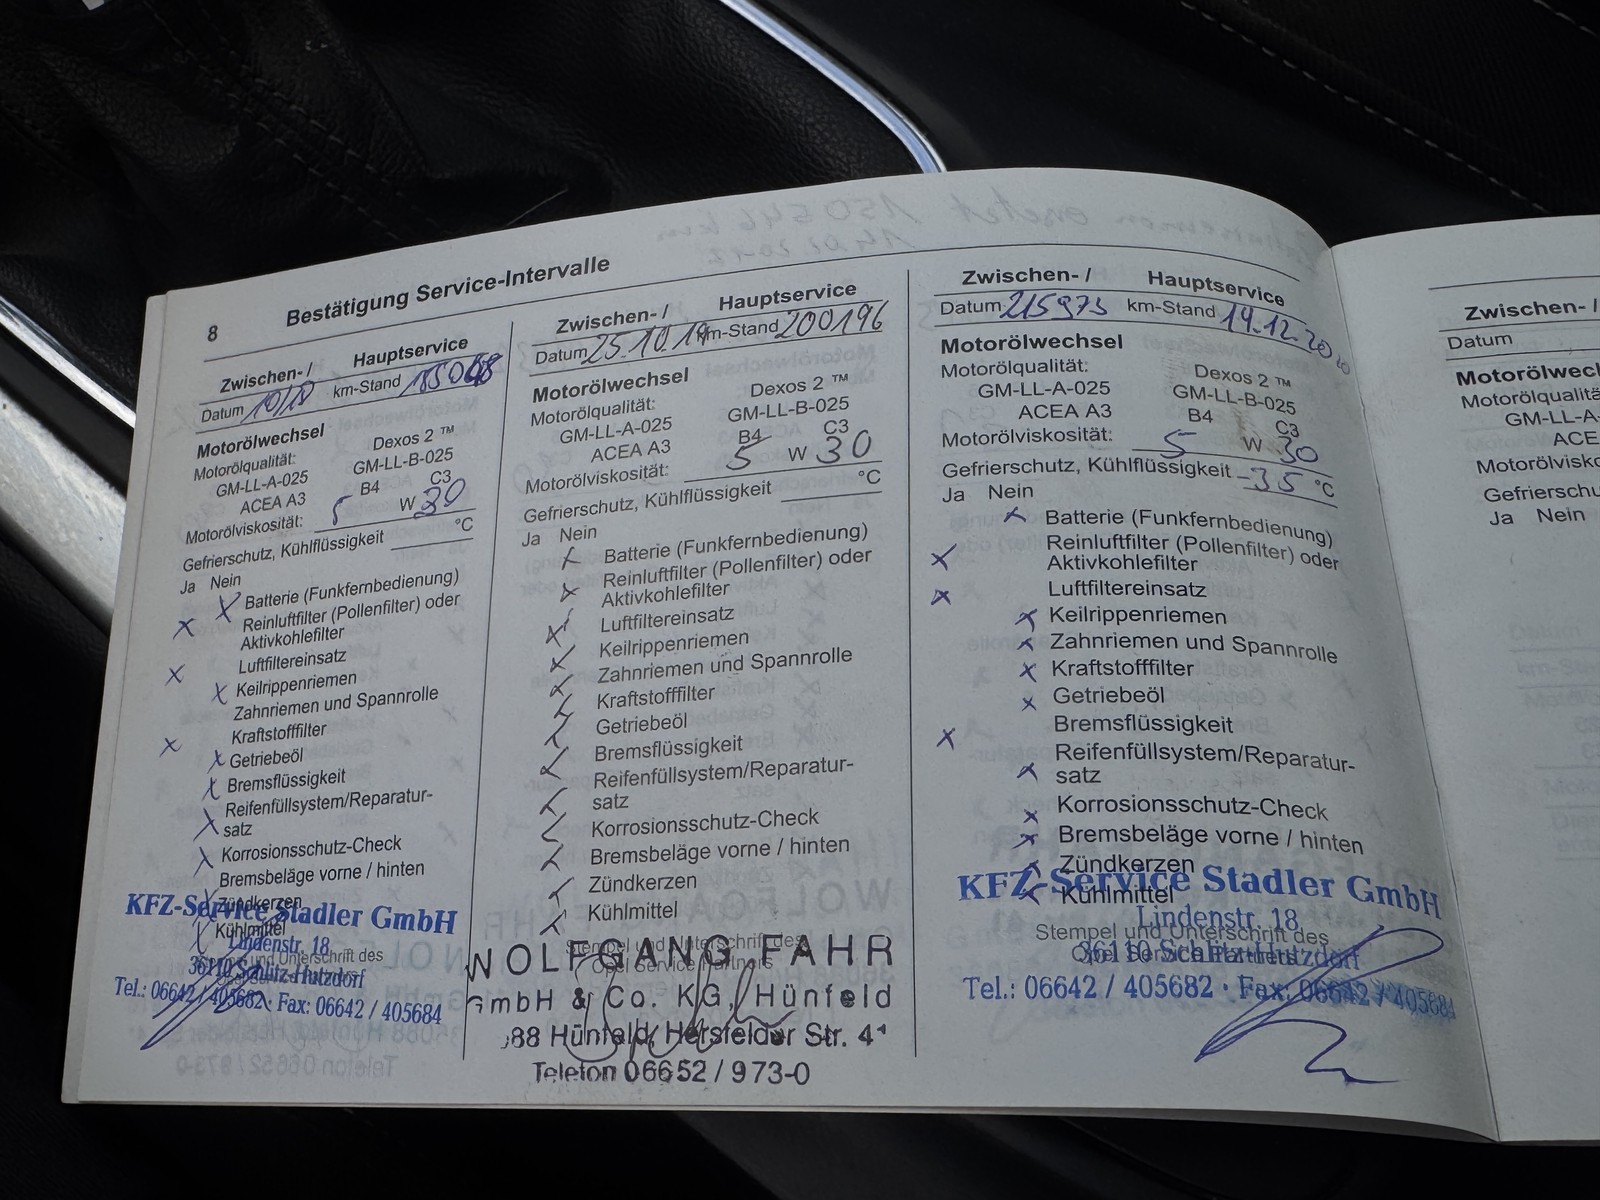 8
Bestätigung Service-Intervalle
Zwischen- / Hauptservice
Datum 10/18 km-Stand
Motorölwechsel
Motorölqualität: Dexos 2 ™
GM-LL-A-025 GM-LL-B-025
ACEA A3 B4 C3
Motorölviskosität: 5 W 30
Gefrierschutz, Kühlflüssigkeit °C
Ja Nein
X Batterie (Funkfernbedienung)
X Reinluftfilter (Pollenfilter) oder
Aktivkohlefilter
X Luftfiltereinsatz
X Keilrippenriemen
Zahnriemen und Spannrolle
X Kraftstofffilter
X Getriebeöl
X Bremsflüssigkeit
X Reifenfüllsystem/Reparatur-
satz
X Korrosionsschutz-Check
Bremsbeläge vorne / hinten
X Zündkerzen
X Kühlmittel
Stempel und Unterschrift des
KFZ-Service Stadler GmbH
Lindenstr. 18
36110 Schlitz-Hutzdorf
Tel.: 06642 / 405682 · Fax: 06642 / 405684
Zwischen- / Hauptservice
Datum 25.10.19 km-Stand 200196
Motorölwechsel
Motorölqualität: Dexos 2 ™
GM-LL-A-025 GM-LL-B-025
ACEA A3 B4 C3
Motorölviskosität: 5 W 30
Gefrierschutz, Kühlflüssigkeit °C
Ja Nein
X Batterie (Funkfernbedienung)
X Reinluftfilter (Pollenfilter) oder
Aktivkohlefilter
X Luftfiltereinsatz
X Keilrippenriemen
X Zahnriemen und Spannrolle
X Kraftstofffilter
X Getriebeöl
X Bremsflüssigkeit
X Reifenfüllsystem/Reparatur-
satz
X Korrosionsschutz-Check
X Bremsbeläge vorne / hinten
X Zündkerzen
X Kühlmittel
Stempel und Unterschrift des
Opel Service Partners
WOLFGANG FAHR
GmbH & Co. KG, Hünfeld
88 Hünfeld, Hersfelder Str. 4
Telefon 06652 / 973-0
Zwischen- / Hauptservice
Datum 215973 km-Stand 19.12.2020
Motorölwechsel
Motorölqualität: Dexos 2 ™
GM-LL-A-025 GM-LL-B-025
ACEA A3 B4 C3
Motorölviskosität: 5 W 30
Gefrierschutz, Kühlflüssigkeit -35 °C
Ja Nein
X Batterie (Funkfernbedienung)
X Reinluftfilter (Pollenfilter) oder
Aktivkohlefilter
X Luftfiltereinsatz
X Keilrippenriemen
X Zahnriemen und Spannrolle
X Kraftstofffilter
X Getriebeöl
X Bremsflüssigkeit
X Reifenfüllsystem/Reparatur-
satz
X Korrosionsschutz-Check
X Bremsbeläge vorne / hinten
X Zündkerzen
X Kühlmittel
Stempel und Unterschrift des
KFZ-Service Stadler GmbH
Lindenstr. 18
36110 Schlitz-Hutzdorf
Tel.: 06642 / 405682 · Fax: 06642 / 405684
Zwischen- /
Datum
Motorölwecl
Motorölqualitä
GM-LL-A-
ACE
Motorölvisko
Gefrierschu
Ja Nein